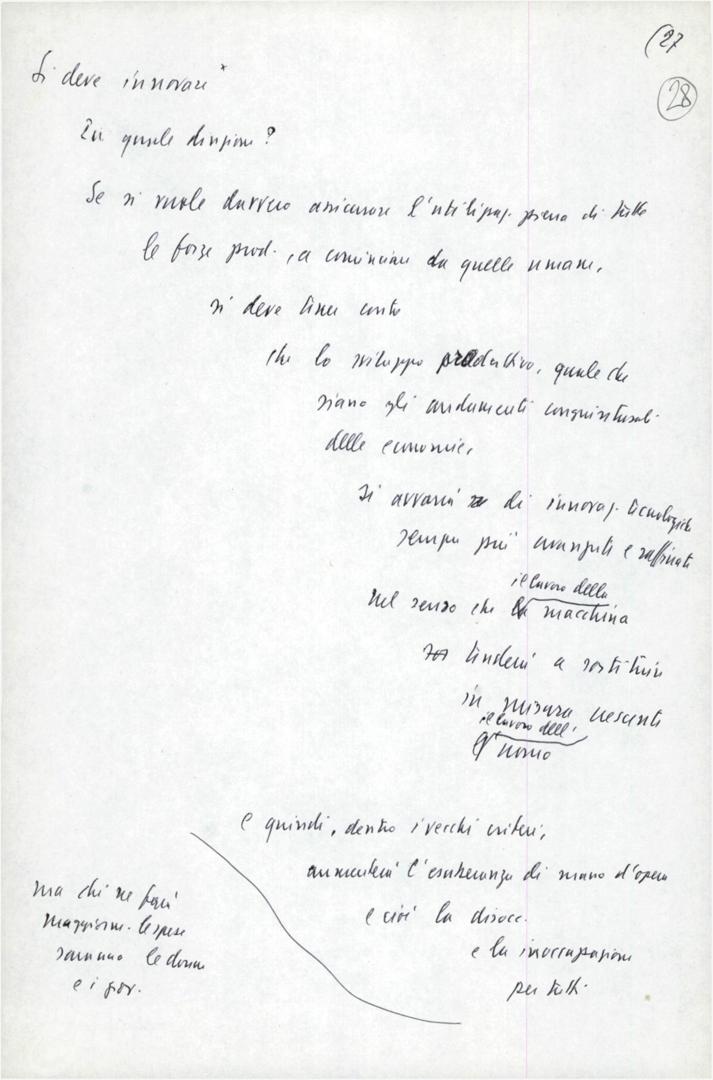 (27
28
Si deve innovare*
In quale direzione?
Se si vuole davvero assicurare l'utilizzaz. piena di tutte
le forze prod., a cominciare da quelle umane,
si deve tener conto
che lo sviluppo produttivo, quale che
siano gli andamenti congiunturali
delle economie,
si avvarrà di innovaz. tecnologiche
sempre più avanzate e raffinate
il lavoro della
nel senso che macchina
tenderà a sostituire
in misura crescente
il lavoro dell'
uomo
e quindi, dentro i vecchi criteri,
aumenterà l'esuberanza di mano d'opera
e cioè la disocc.
e la inoccupazione
per tutti.
ma chi ne farà
maggiorm. le spese
saranno le donne
e i giov.